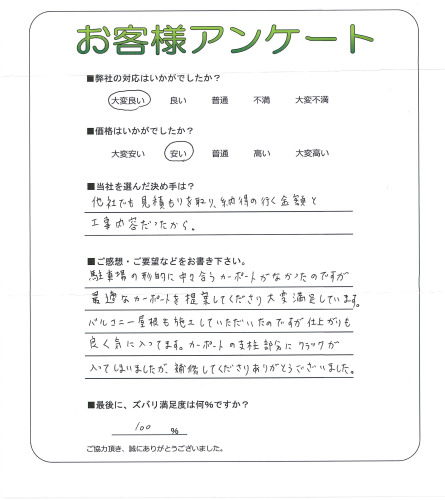 お客様アンケート
■弊社の対応はいかがでしたか？
大変良い 良い 普通 不満 大変不満
■価格はいかがでしたか？
大変安い 安い 普通 高い 大変高い
■当社を選んだ決め手は？
他社でも見積もりを取り、納得の行く金額と
工事内容だったから。
■ご感想・ご要望などをお書き下さい。
駐車場の形的に中々合うカーポートがなかったのですが
最適なカーポートを提案してくださり大変満足しています。
バルコニー屋根も施工していただいたのですが仕上がりも
良く気に入ってます。カーポートの支柱部分にクラックが
入ってしまいましたが、補修してくださりありがとうございました。
■最後に、ズバリ満足度は何％ですか？
100 ％
ご協力頂き、誠にありがとうございました。